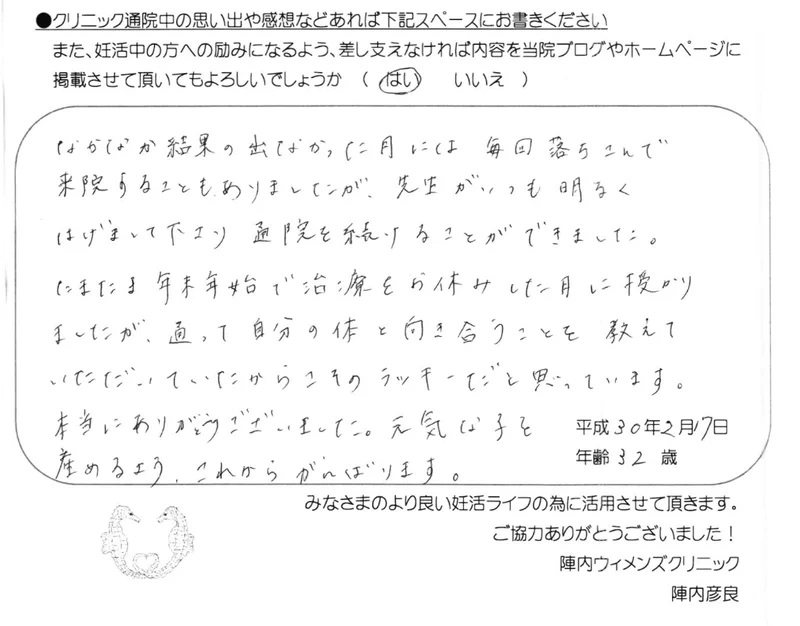 ●クリニック通院中の思い出や感想などあれば下記スペースにお書きください
また、妊活中の方への励みになるよう、差し支えなければ内容を当院ブログやホームページに
掲載させて頂いてもよろしいでしょうか （ はい　いいえ ）
なかなか結果の出なかった月には 毎回落ちこんで
来院することもありましたが、先生がいつも明るく
はげまして下さり 通院を続けることができました。
たまたま年末年始で治療をお休みした月に授かり
ましたが、通って自分の体と向き合うことを 教えて
いただいていたからこそのラッキーだと思っています。
本当にありがとうございました。元気な子を
産めるよう、これからがんばります。
平成30年2月17日
年齢 32 歳
みなさまのより良い妊活ライフの為に活用させて頂きます。
ご協力ありがとうございました！
陣内ウィメンズクリニック
陣内彦良